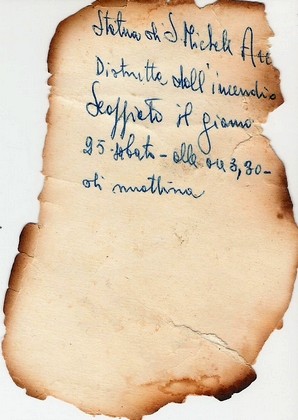 Statua di S. Michele Arc
Distrutta dall'incendio
Scoppiato il giorno
25 sabato - alle ore 3,30 -
di mattina